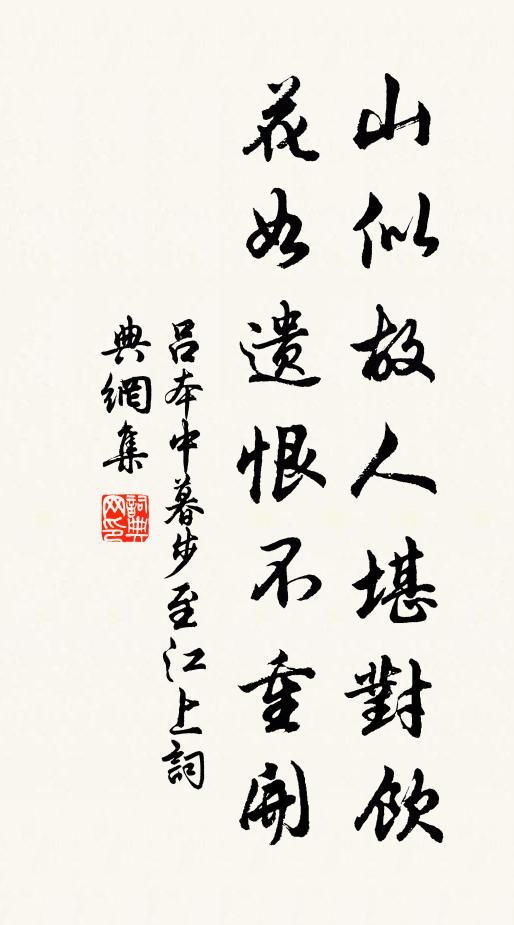 山似故人堪對飲
花如遺恨不重開
呂本中暮步至江上詞
典網集
詞典
网印